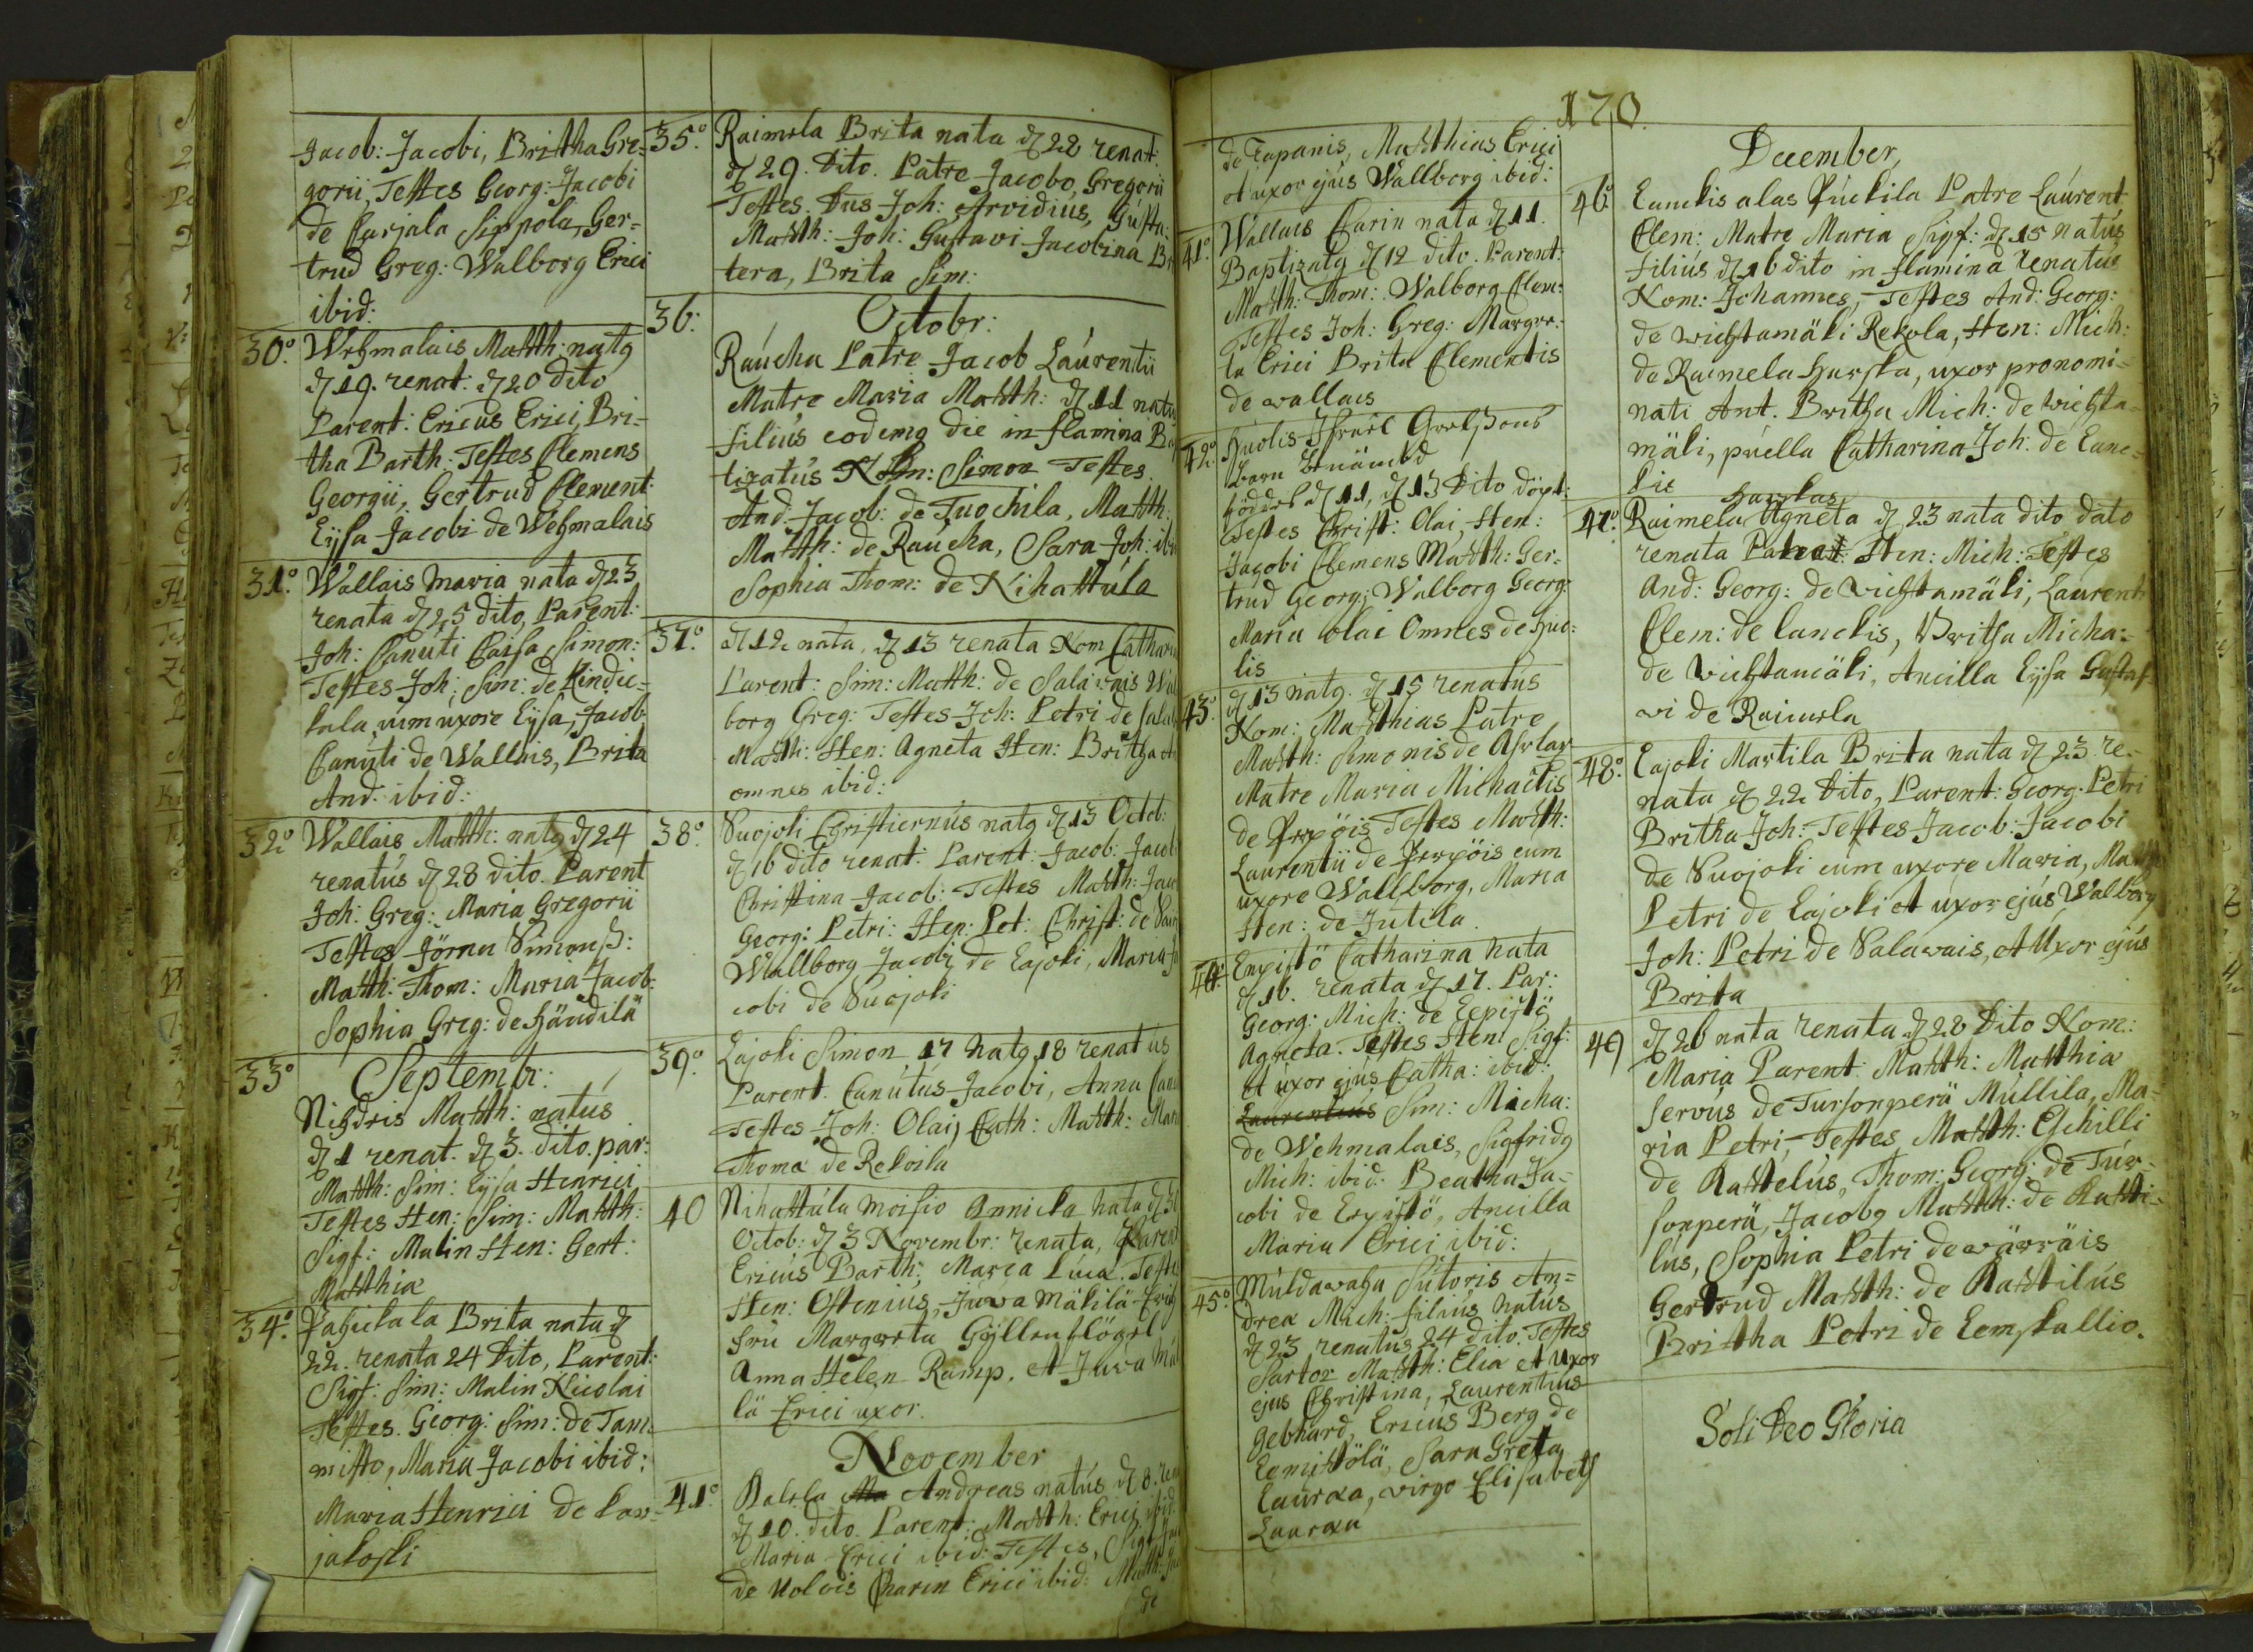 Jacob: Jacobi, Brittha Gre-
gorii, Testes Georg: Jacobi
de Carjala Sippola, Ger=
trud Greg: Walborg Erici
ibid:
30:° Wehmalais Matth: natg
d 19. renat: d 20 dito
Parent: Ericus Erici, Bri-
tha Barth. Testes Clemens
Georgii, Gertrud Clement:
Eysa Jacobi de Wehmalais
31:° Wallais Maria nata d 23
renata d 25 dito, Parent:
Joh: Canuti Caisa Simon:
Testes Joh: Sim: de
kala, cum uxore Eysa, Jacob:
Canuti de Wallais, Brita
And: ibid:
32° Wallais Matth: natg d 24
renatus d 28 dito. Parent
Joh: Greg: Maria Gregorii
Testes Jörau Simonß:
Matth: Thom: Maria Jacob:
Sophia Greg: de Händilä
33° Septembr:
Nihdris Matth: natus
d 1 renat. d 3. dito. par:
Matth: Sim: Eysa Henrici
Testes Hen: Sim: Matth:
Sigf: Malin Hen: Gert:
Matthiæ
34:° Pahickala Brita nata d
22. renata 24 Dito, Parent:
Sigf: Sim: Malin Nicolai
Testes. Georg: Sim: de Tam-
misto, Maria Jacobi ibid:
Maria Henrici de kar-
jakoski
35:° Raimela Brita nata d 22 renat:
d 29. Dito. Patre Jacobo Gregorii
Testes. Dus Joh: Arvidius, Gusta:
Matth: Joh: Gustavi Jacobina
tera, Brita Sim:
36: Octobr:
Raucha Patre Jacob Laurentii
Matre Maria Matth: d 11 natus
filius eodemq die in flamina
tizatus Nom: Simon Testes
And: Jacob: de Tuochila, Matth:
Matth: de Raucha, Sara Joh: ibi
Sophia Thom: de Nihattula
37.° d 12 nata, d 13 renata Nom Catharina
Parent: Sim: Matth: de Salavais Wal
borg Greg: Testes Joh: Petri de Sala
Matth: Hen: Agneta Hen: Britha
omnes ibid:
38.° Suojoki Christiernus natg d 13 Octob:
d 16 dito renat: Parent: Jacob: Jacob
Christina Jacob: Testes Matth: Jac
Georg: Petri: Hen: Pet: Christ: de
Wallborg Jacobi de Lajoki, Maria Ja
cobi de Suojoki
39.° Lajoki Simon 17 Natg 18 renatus
Parent. Canutus Jacobi, Anna
Testes Joh: Olai, Cath: Matth: Mar
Thomæ de Rekoila
40 Nihattula Moisio Annicka Nata d
Octob: d 3 Novembr: renata, Parent
Ericus Barth: Maria Lucæ. Testes
Hen: Ostenius, Juva Mäkilä
fru Margreta Gyllenflögel
Anna Helen Ramp, et Juva Mäk
lä Erici uxor.
November
41.° Andreas natus d 8. ren
d 10. dito. Parent: Matth: Erici ibid:
Maria Erici ibid: Testes,
de Nolvis Charin Erici ibid: Matth:
de
170.
de Tapanis, Matthias Erici
et uxor ejus Wallborg ibid:
41:° Wallais Carin nata d 11.
Baptizatg d 12 dito. Parent:
Matth: Thom: Walborg Clem:
Testes Joh: Greg: Margre-
ta Erici Brita Clementis
de wallais
42:° Huolis Israel
barn benämbd
föddes d 11, d 13 Dito döpt:
Testes Christ: Olai, Hen:
Jacobi Clemens Matth: Ger-
trud Georg: Walborg Georg:
Maria Olai Omnes de Huo-
lis
43° d 13 natg. d 15 renatus
Nom: Matthias Patre
Matth: Simonis de
Matre Maria Michaelis
de Perxöis Testes Matth:
Laurentii de Perxöis cum
uxore Wallborg, Maria
Hen: de Jutila.
44: Erpistö Catharina Nata
d 16. renata d 17. Par:
Georg: Mich: de Erpistö
Agneta. Testes Hen: Sigf:
et uxor ejus Catha: ibid:
Laurentius Sim: Micha:
de Wehmalais, Sigfridg
Mich: ibid: Beatha Ja-
cobi de Erpistö, Ancilla
Maria Erici ibid:
45:° Muldawaha Sutoris An=
dreæ Mich: filius natus
d 23 renatus 24 dito. Testes
Sartor Matth: Eliæ et uxor
ejus Christina, Laurentius
Gebhard, Ericus Berg de
Lemittölä, Sara Greta
Lauræa, virgo Elisabeth
Lauræa
December,
46° Lanckis alas Puckila Patre Laurent:
Clem: Matre Maria Sigf: d 15 natus
filius d 16 dito in flamina renatus
Nom: Johannes, Testes And: Georg:
de wichtamäki Rekola, Hen: Mich:
de Raimela Hurska, uxor pronomi-
nati Ant. Britha Mich: de wichta-
mäki, puella Catharina Joh: de Lanc-
kis
47:° Raimela Agneta d 23 nata dito dato
renata Parent: Hen: Mich: Testes
And: Georg: de wichtamäki, Laurent:
Clem: de lanckis, Britha Micha:
de Wichtamäki, Ancilla Eysa Gusta-
vi de Raimela
48:° Lajoki Martila Brita nata d 23 re-
nata d 22 Dito, Parent: Georg: Petri
Britha Joh: Testes Jacob: Jacobi
de Suojoki cum uxore Maria, Matth
Petri de Lajoki et uxor ejus Walborg
Joh: Petri de Salavais, et Uxor ejus
Brita
49 d 26 nata renata d 28 Dito Nom:
Maria Parent: Matth: Matthiæ
servus de Tursonperä Mullila, Ma-
ria Petri, Testes Matth: Eschilli
de Kattelus, Thom: Georg: de Tur-
sonperä, Jacobg Matth: de Katti-
lus, Sophia Petri de wärräis
Gertrud Matth: de Kattilus
Britha Petri de Lemskallio.
Soli Deo Gloria